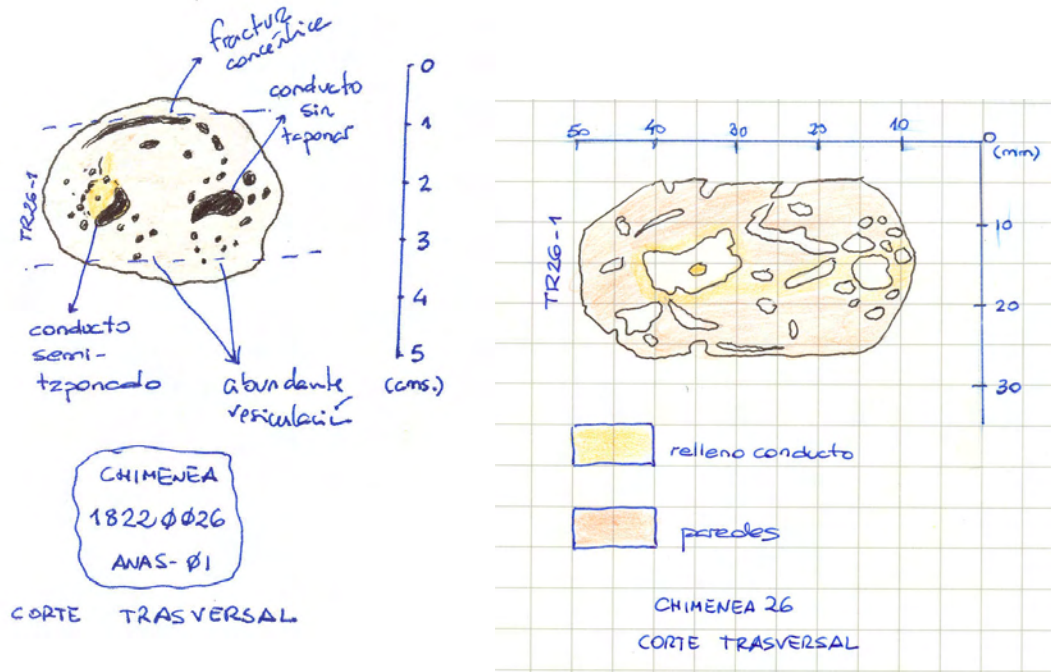 fractura
concéntrica
conducto
sin
taponar
0
1
2
3
4
5
(cms.)
TR26-1
conducto
semi-
taponado
abundante
vesiculació
CHIMENEA
1822ØØ26
ANAS-Ø1
CORTE TRASVERSAL
50 40 30 20 10 0
(mm)
10
20
30
TR26-1
relleno conducto
paredes
CHIMENEA 26
CORTE TRASVERSAL